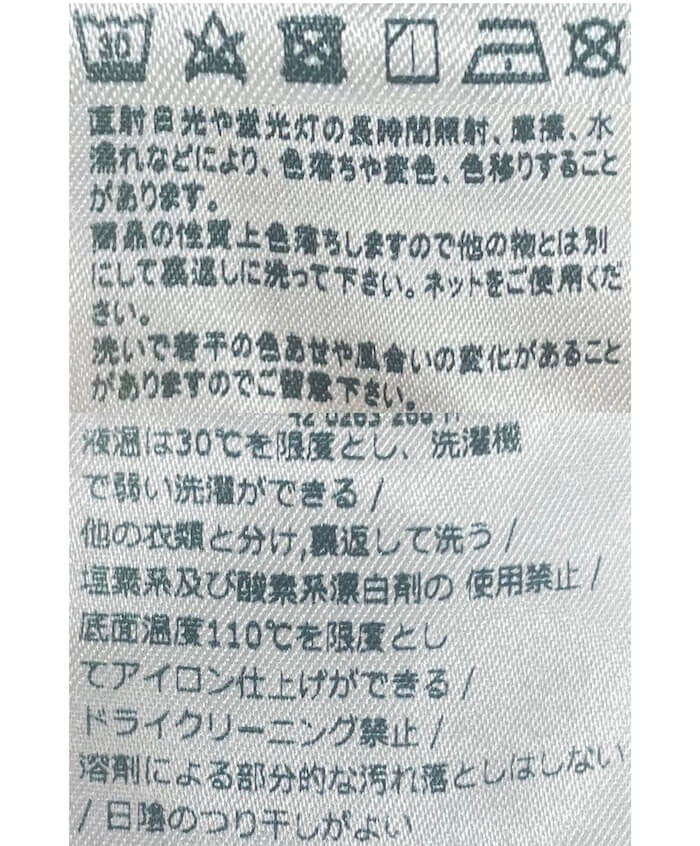 30
直射日光や蛍光灯の長時間照射、摩擦、水
濡れなどにより、色落ちや変色、色移りすること
があります。
商品の性質上色落ちしますので他の物とは別
にして裏返しに洗って下さい。ネットをご使用くだ
さい。
洗いで若干の色あせや風合いの変化があること
がありますのでご留意下さい。
液温は30℃を限度とし、洗濯機
で弱い洗濯ができる /
他の衣類と分け,裏返して洗う /
塩素系及び酸素系漂白剤の 使用禁止 /
底面温度110℃を限度とし
てアイロン仕上げができる /
ドライクリーニング禁止 /
溶剤による部分的な汚れ落としはしない
/ 日陰のつり干しがよい